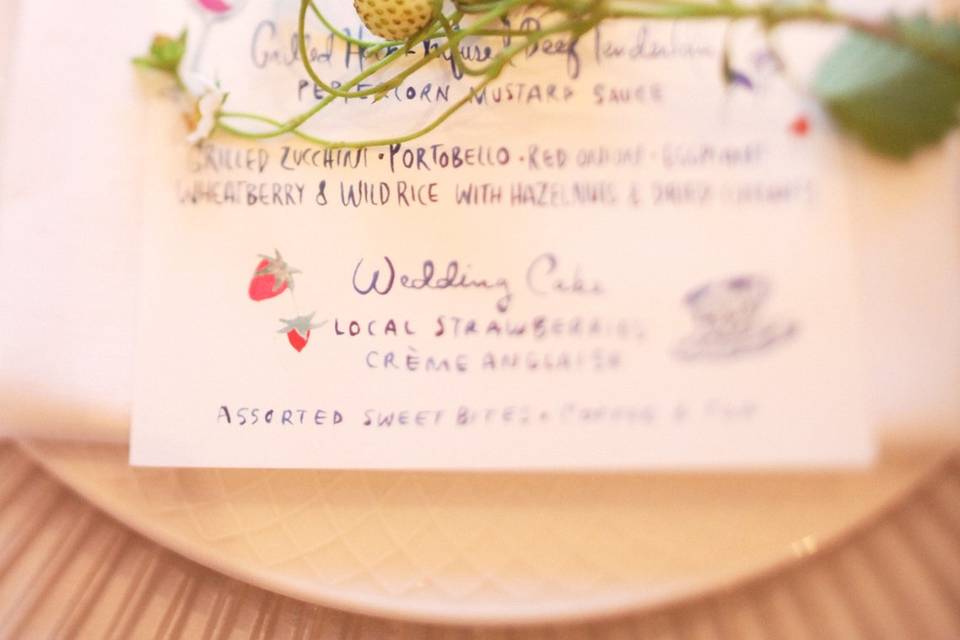 Grilled Herb-Infused Beef Tenderloin
PEPPERCORN MUSTARD SAUCE
GRILLED ZUCCHINI • PORTOBELLO • RED ONIONS • EGGPLANT
WHEATBERRY & WILD RICE WITH HAZELNUTS & DRIED CURRANTS
Wedding Cake
LOCAL STRAWBERRIES
CRÈME ANGLAISE
ASSORTED SWEET BITES • COFFEE & TEA